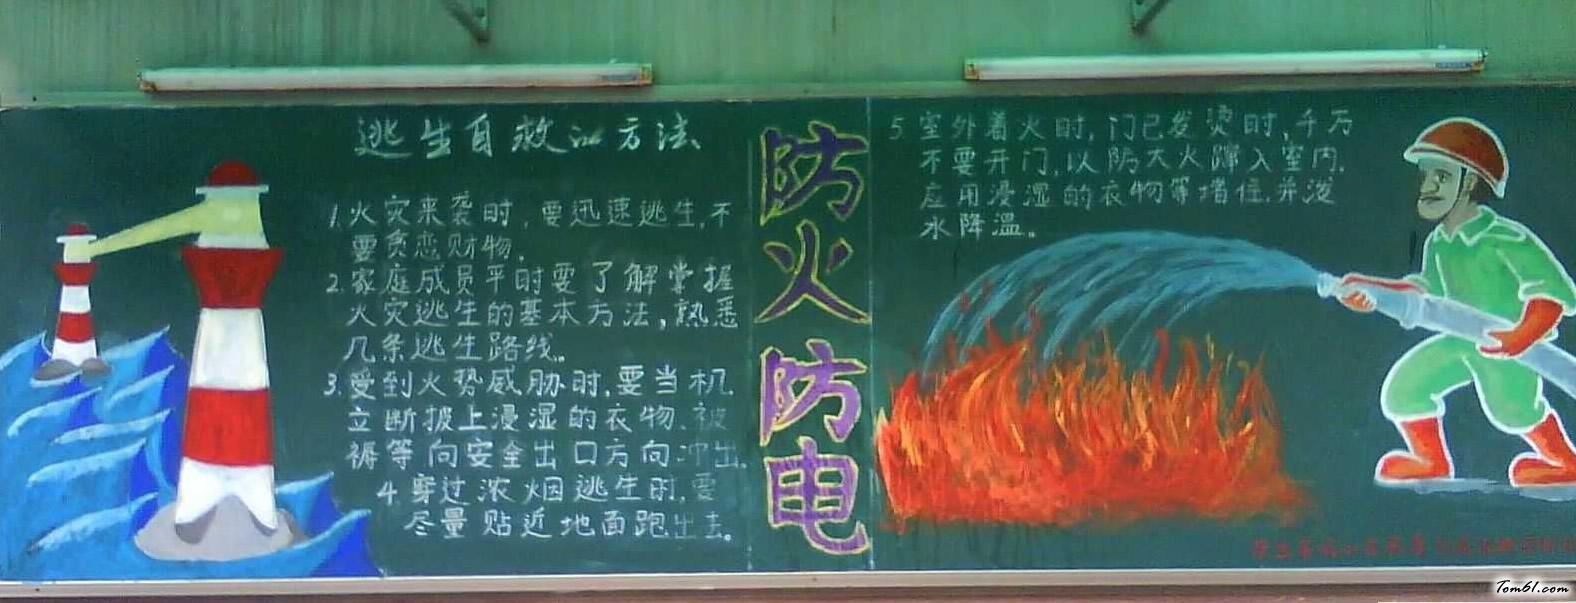 逃生自救的方法
1.火灾来袭时,要迅速逃生,不
要贪恋财物.
2.家庭成员平时要了解掌握
火灾逃生的基本方法,熟悉
几条逃生路线。
3.受到火势威胁时,要当机
立断披上浸湿的衣物、被
褥等向安全出口方向冲出.
4.穿过浓烟逃生时,要
尽量贴近地面跑出去。
防火防电
5.室外着火时,门已发烫时,千万
不要开门,以防大火蹿入室内.
应用浸湿的衣物等堵住.并泼
水降温。
Tom61.com